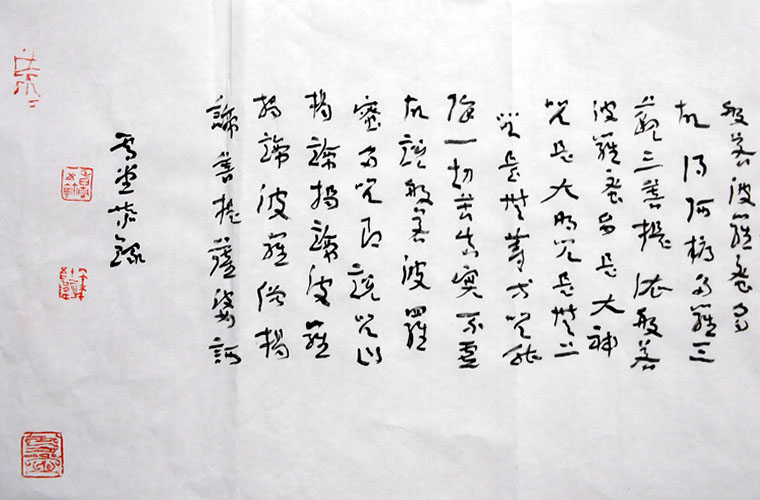 般若波羅蜜多
故得阿耨多羅三
藐三菩提般若
波羅蜜多是大神
咒是大明咒是無上
咒是無等等咒能
除一切苦真實不虛
故說般若波羅
蜜多咒即說咒曰
揭諦揭諦波羅
揭諦波羅僧揭
諦菩提薩婆訶
堂恭錄